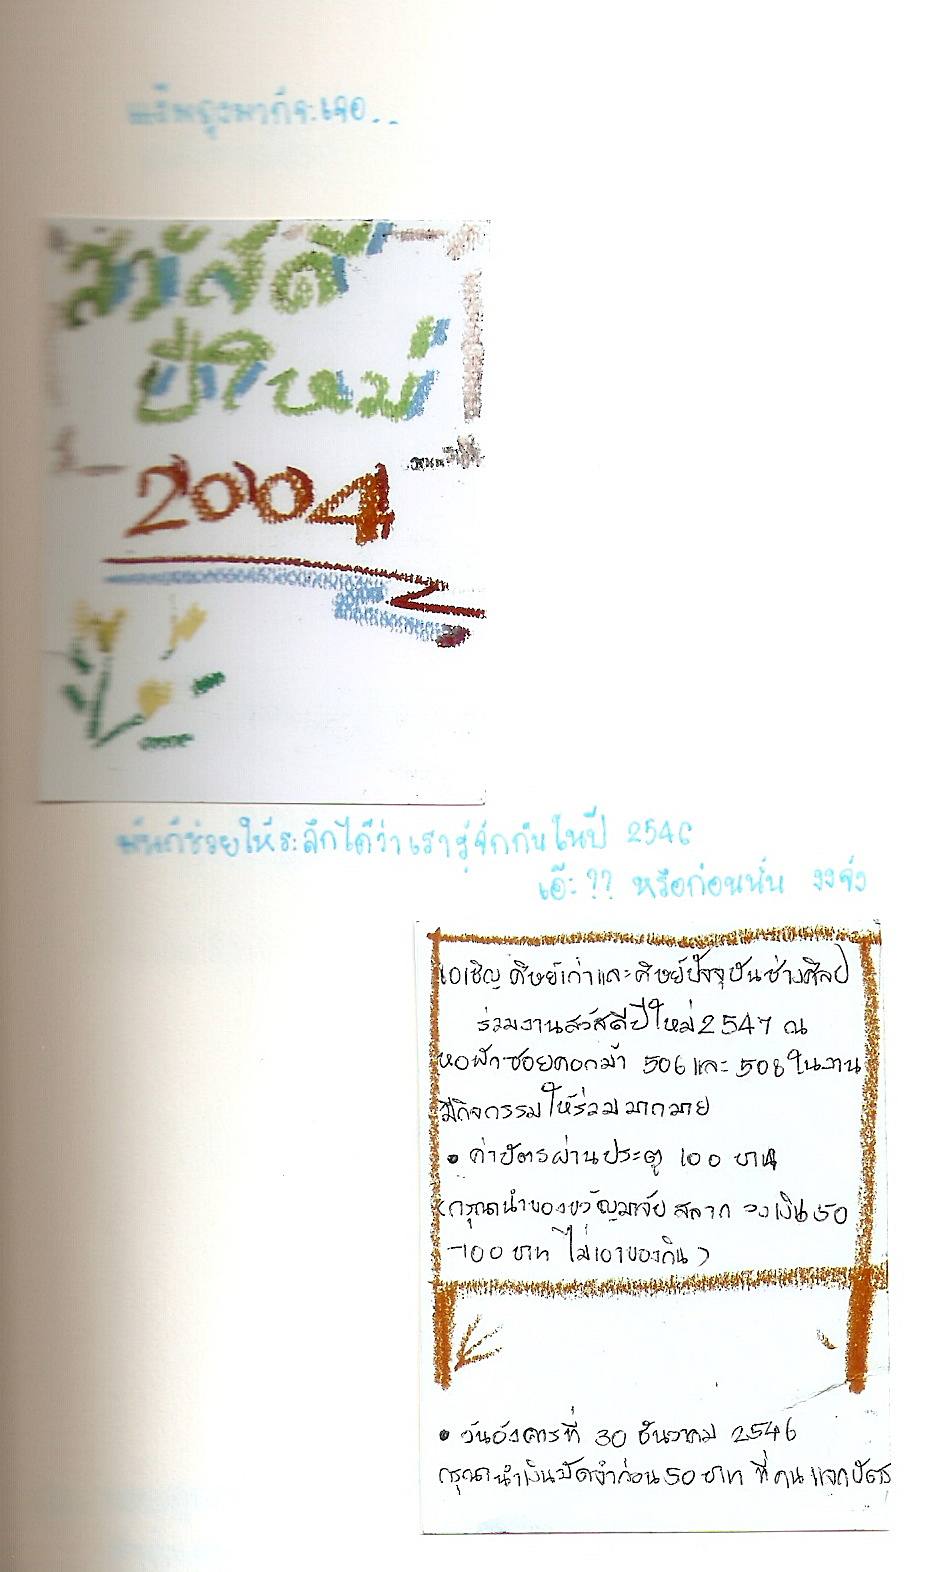 สวัสดี
ปีใหม่
2004
มันก็ช่วยให้ระลึกได้ว่าเรารู้จักกันในปี 2546
เอ๊ะ?? หรือก่อนนั้น งงจัง
ขอเชิญ ศิษย์เก่าและศิษย์ปัจจุบันช่างศิลป
ร่วมงานสวัสดีปีใหม่ 2547 ณ
หอพักซอยดอกม้า 506 และ 508 ในงาน
มีกิจกรรมให้ร่วมมากมาย
• ค่าบัตรผ่านประตู 100 บาท
(กรุณานำของขวัญมาจับสลาก วงเงิน 50
-100 บาท ไม่เอาของกิน)
• วันอังคารที่ 30 ธันวาคม 2546
กรุณานำเงินมัดจำก่อน 50 บาท ที่คนแจกบัตร